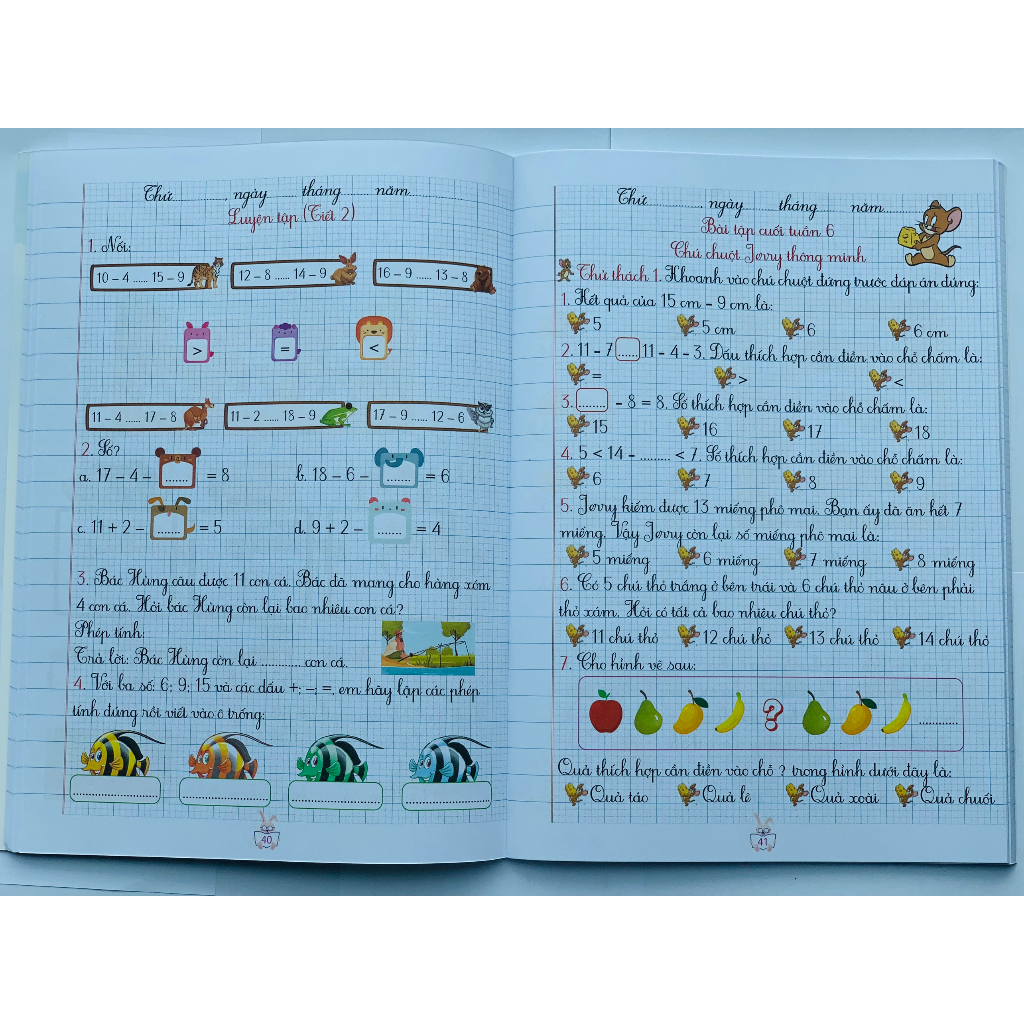 Thứ ............, ngày ........ tháng ........ năm........
Luyện tập (Tiết 2)
1. Nối:
10 – 4 ...... 15 – 9
12 – 8 ...... 14 – 9
16 – 9 ...... 13 – 8
>
=
<
11 – 4 ...... 17 – 8
11 – 2 ...... 18 – 9
17 – 9 ...... 12 – 6
2. Số?
a. 17 – 4 – ....... = 8
b. 18 – 6 – ....... = 6
c. 11 + 2 – ....... = 5
d. 9 + 2 – ....... = 4
3. Bác Hùng câu được 11 con cá. Bác đã mang cho hàng xóm
4 con cá. Hỏi bác Hùng còn lại bao nhiêu con cá?
Phép tính:
Trả lời: Bác Hùng còn lại ............ con cá.
4. Với ba số: 6; 9; 15 và các dấu +; –; =, em hãy lập các phép
tính đúng rồi viết vào ô trống:
........................
........................
........................
........................
40
Thứ ............, ngày ........ tháng ........ năm........
Bài tập cuối tuần 6
Chú chuột Jerry thông minh
Thử thách 1. Khoanh vào chú chuột đứng trước đáp án đúng:
1. Kết quả của 15 cm – 9 cm là:
5 5 cm 6 6 cm
2. 11 – 7 ...... 11 – 4 – 3. Dấu thích hợp cần điền vào chỗ chấm là:
= > <
3. ....... – 8 = 8. Số thích hợp cần điền vào chỗ chấm là:
15 16 17 18
4. 5 < 14 – ......... < 7. Số thích hợp cần điền vào chỗ chấm là:
6 7 8 9
5. Jerry kiếm được 13 miếng phô mai. Bạn ấy đã ăn hết 7
miếng. Vậy Jerry còn lại số miếng phô mai là:
5 miếng 6 miếng 7 miếng 8 miếng
6. Có 5 chú thỏ trắng ở bên trái và 6 chú thỏ nâu ở bên phải
thỏ xám. Hỏi có tất cả bao nhiêu chú thỏ?
11 chú thỏ 12 chú thỏ 13 chú thỏ 14 chú thỏ
7. Cho hình vẽ sau:
? ............
Quả thích hợp cần điền vào chỗ ? trong hình dưới đây là:
Quả táo Quả lê Quả xoài Quả chuối
41